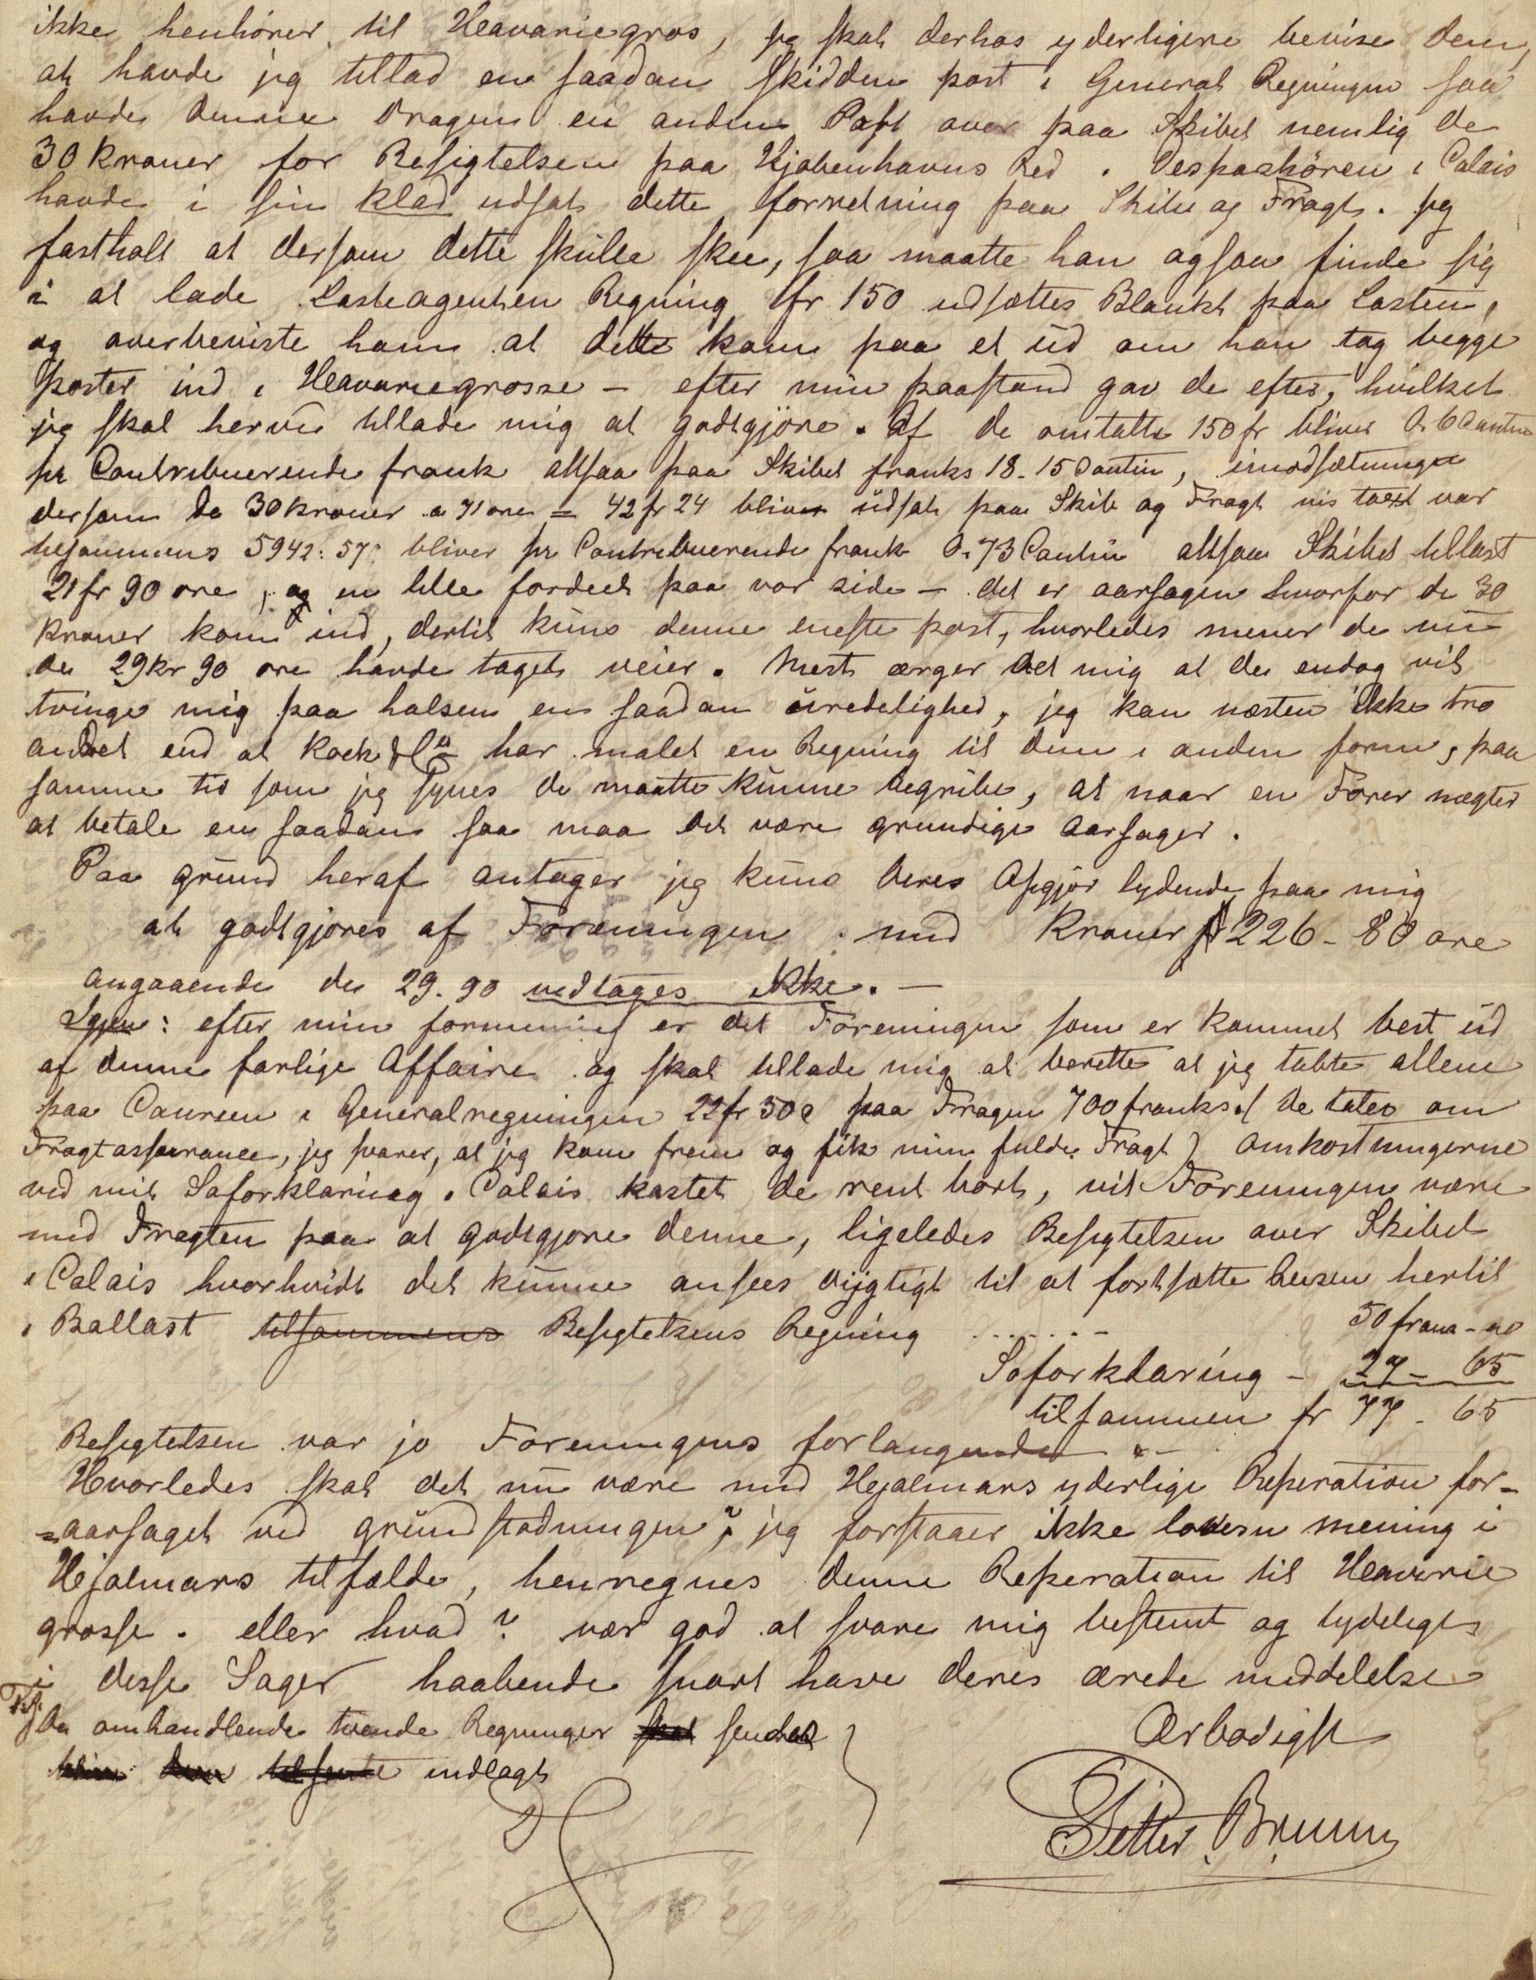 ikke henhörer til Heavariegros, jeg skal derhos yderligere bevise dem,
at havde jeg tillad en saadan skidden post i General Regningen saa
havde denne dragen en anden Post over paa Skibet nemlig de
30 kroner for Besigtelsen paa Kjøbenhavns Red. Despashören i Calais
havde i sin klad udsat dette forretning paa Skibe og Fragt. jeg
fastholt at dersom dette skulle skee, saa maatte han ogsaa finde sig
i at lade Lasteagenten Regning fr 150 udsættes Blankt paa Lasten,
og overbeviste ham at dette kom paa et ud om han tog begge
poster ind i Heavariegrosse – efter min paastand gav de efter, hvilket
jeg skal herved tillade mig at godtgjöre. Af de omtalte 150 fr bliver
pr Contribuerende frank altsaa paa Skibet franks 18-15 Contin, imodsætningen
dersom de 30 kroner a 71 öre = 42 fr 24 bliver udsat paa Skib og Fragt vis taxt var
tilsammens 5942:57: bliver pr Contribuerende frank 0.73 Contin altsaa Skibet tillast
21 fr 90 öre, og en lille fordeel paa vor side – det er aarsagen hvorfor de 30
kroner kom ind, dertil kuns denne eneste post, hvorledes mener de nu
de 29 kr 90 öre havde taget veier. Mest ærger det mig at de endog vil
tvinge mig paa halsen en saadan uredelighed, jeg kan næsten ikke tro
andet end at Kock & Co har malet en Regning til dem i anden form, paa
samme tid som jeg synes de maatte kunne begribe, at naar en Förer nægter
at betale en saadan saa maa det være grundige aarsager.
Paa grund heraf antager jeg kuns Deres Opgjör lydende paa mig
at godtgjöres af Foreningen med Kroner 226-80 öre
angaaende de 29.90 vedtages ikke. –
Igjen: efter min formening er det Foreningen som er kommet best ud
af denne farlige Affaire og skal tillade mig at berette at jeg tabte allene
paa Coursen i Generalregningen 22 fr 50 c paa Fragen 700 franks. (De taler om
Fragtassurance, jeg svarer, at jeg kom frem og fik min fulde Fragt) omkostningerne
ved mit Söforklaring i Calais kastet de rent bort, vil Foreningen være
med Fragten paa at godtgjöre denne, ligeledes Besigtelsen over Skibet
i Calais hvorhvidt det kunne ansees dygtigt til at fortsætte Reisen hertil
i Ballast tilsammens Besigtelsens Regning ...... – 50 franc - 00
Söforklaring – 27 - 65
tilsammen fr 77 - 65
Besigtelsen var jo Foreningens forlangende –
Hvorledes skal det nu være med Hjalmars yderlige Reperation for-
=aarsaget ved grundstödningen? jeg forstaaer ikke lovens mening i
Hjalmars tilfælde, henregnes denne Reperation til Heaverie
grosse. eller hvad? vær god at svare mig bestemt og tydeligt
i disse Sager haabende snart have deres ærede meddelelse
De omhandlende tvende Regninger sendes
indlagt
Ærbödigst
Petter Bruun